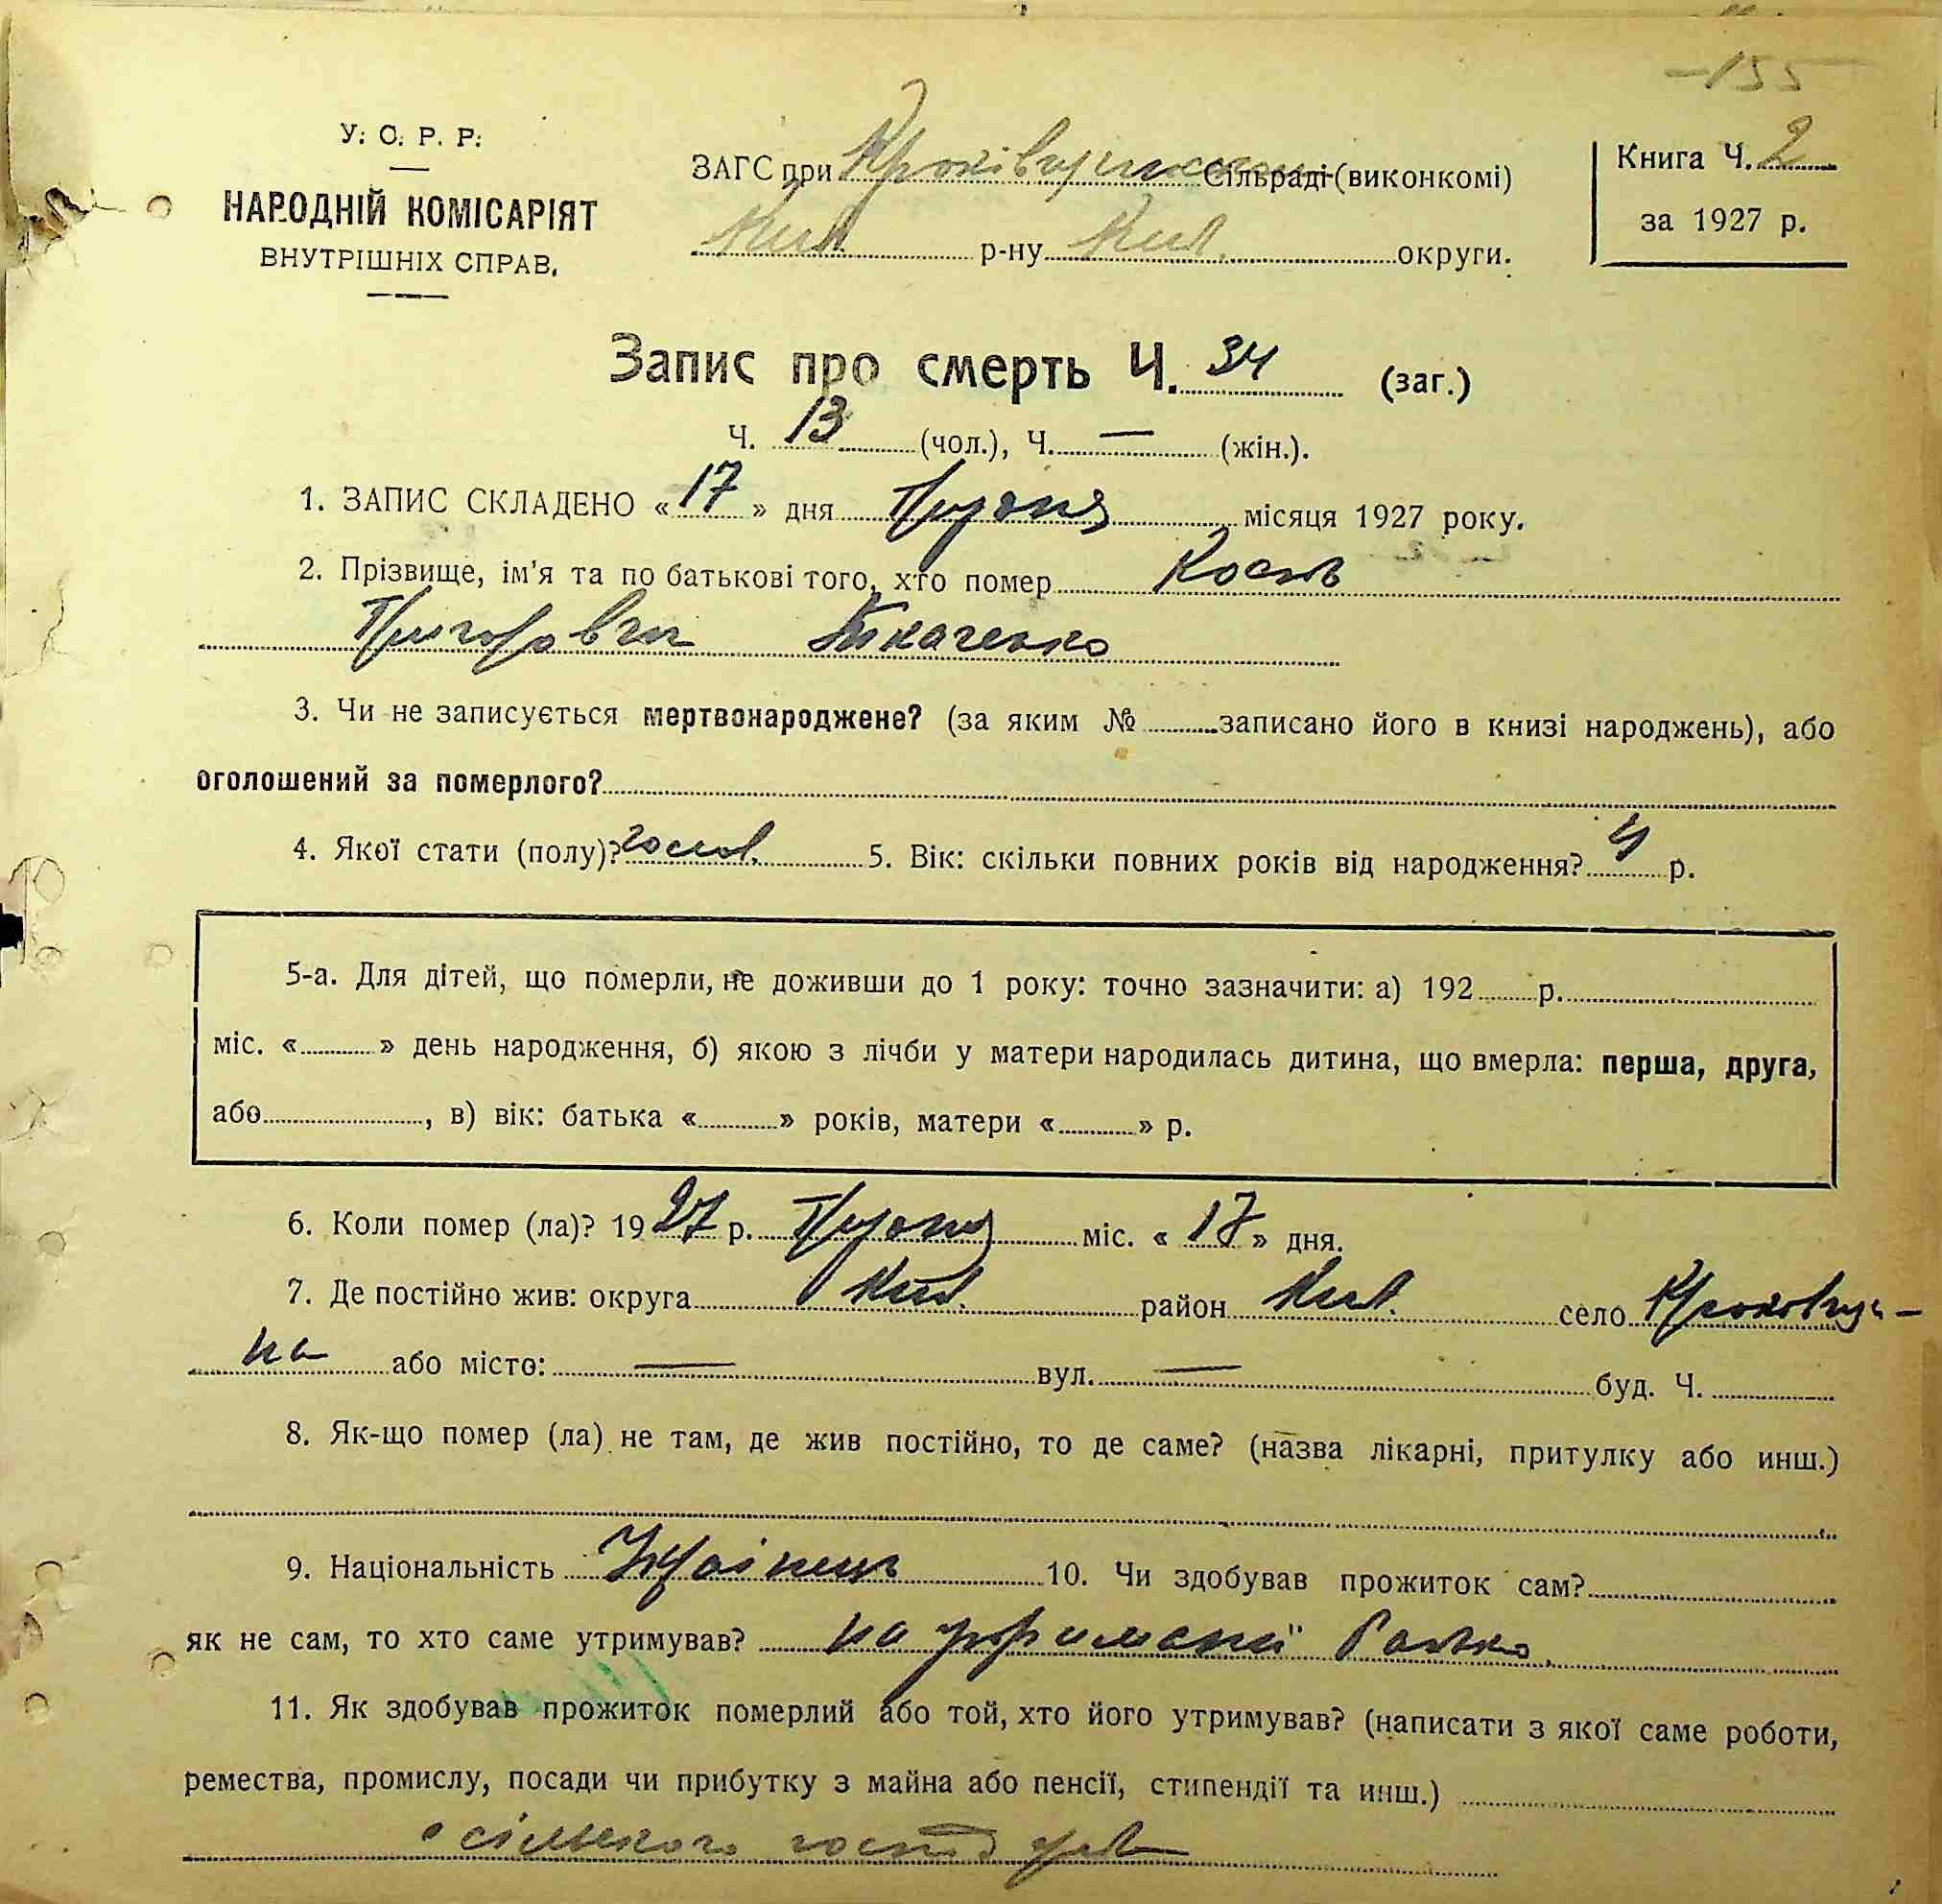 -155
У. С. Р. Р.
НАРОДНІЙ КОМІСАРІЯТ
ВНУТРІШНІХ СПРАВ.
ЗАГС при Сільраді (виконкомі)
Київ р-ну Київ. округи.
Книга Ч. 2
за 1927 р.
Запис про смерть Ч. 34 (заг.)
Ч. 13 (чол.), Ч. — (жін.).
1. ЗАПИС СКЛАДЕНО «17» дня місяця 1927 року.
2. Прізвище, ім'я та по батькові того, хто помер Кость
Григорович Ткаченко
3. Чи не записується мертвонароджене? (за яким № записано його в книзі народжень), або
оголошений за померлого?
4. Якої стати (полу)? чолов. 5. Вік: скільки повних років від народження? 4 р.
5-а. Для дітей, що померли, не доживши до 1 року: точно зазначити: а) 192 р.
міс. « » день народження, б) якою з лічби у матери народилась дитина, що вмерла: перша, друга,
або , в) вік: батька « » років, матери « » р.
6. Коли помер (ла)? 1927 р. міс. «17» дня.
7. Де постійно жив: округа Київ. район Київ. село
на або місто: — вул. — буд. Ч.
8. Як-що помер (ла) не там, де жив постійно, то де саме? (назва лікарні, притулку або инш.)
9. Національність Українець 10. Чи здобував прожиток сам?
як не сам, то хто саме утримував? на утриманні батька.
11. Як здобував прожиток померлий або той, хто його утримував? (написати з якої саме роботи,
ремества, промислу, посади чи прибутку з майна або пенсії, стипендії та инш.)
з сільського господарства